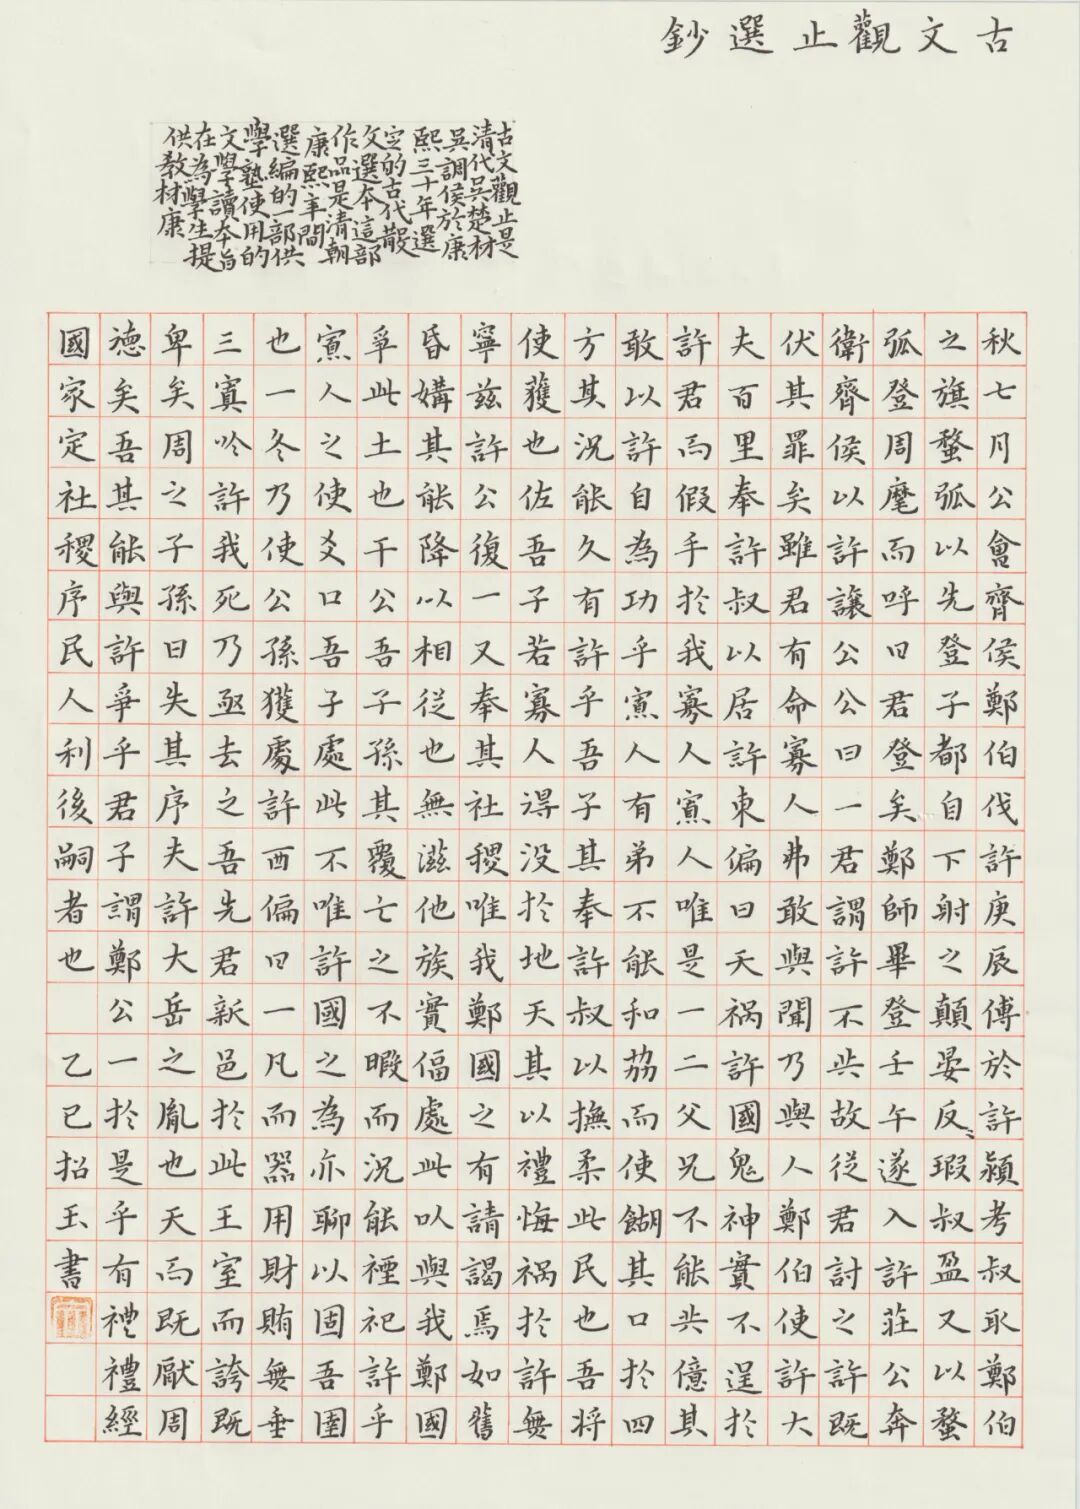 古文觀止選鈔
古文觀止是
清代吳楚材
吳調侯於康
熙三十年選
定的古代散
文選本這部
作品是清朝
康熙年間
選編的一部供
學塾使用的
文學讀本旨
在為學生提
供教材康
秋七月公會齊侯鄭伯伐許庚辰傅於許潁考叔取鄭伯
之旗蝥弧以先登子都自下射之顛晏反瑕叔盈又以蝥
弧登周麾而呼曰君登矣鄭師畢登壬午遂入許莊公奔
衛齊侯以許讓公公曰一君謂許不共故從君討之許既
伏其罪矣雖君有命寡人弗敢與聞乃與人鄭伯使許大
夫百里奉許叔以居許東偏曰天祸許國鬼神實不逞於
許君而假手於我寡人寡人唯是一二父兄不能共億其
敢以許自為功乎寡人有弟不能和茘而使餬其口於四
方其況能久有許乎吾子其奉許叔以撫柔此民也吾將
使獲也佐吾子若寡人得没於地天其以禮悔祸於許無
寧茲許公復一又奉其社稷唯我鄭國之有請謁焉如舊
昏媾其能降以相從也無滋他族實偪處此以與我鄭國
爭此土也干公吾子孫其覆亡之不暇而況能禋祀許乎
寡人之使爻口吾子處此不唯許國之為亦聊以固吾圉
也一冬乃使公孫獲處許西偏曰一凡而器用財賄無垂
三寘吟許我死乃亟去之吾先君新邑於此王室而誇既
卑矣周之子孫日失其序夫許大岳之胤也天而既厭周
德矣吾其能與許爭乎君子謂鄭公一於是乎有禮禮經
國家定社稷序民人利後嗣者也 乙巳招玉書